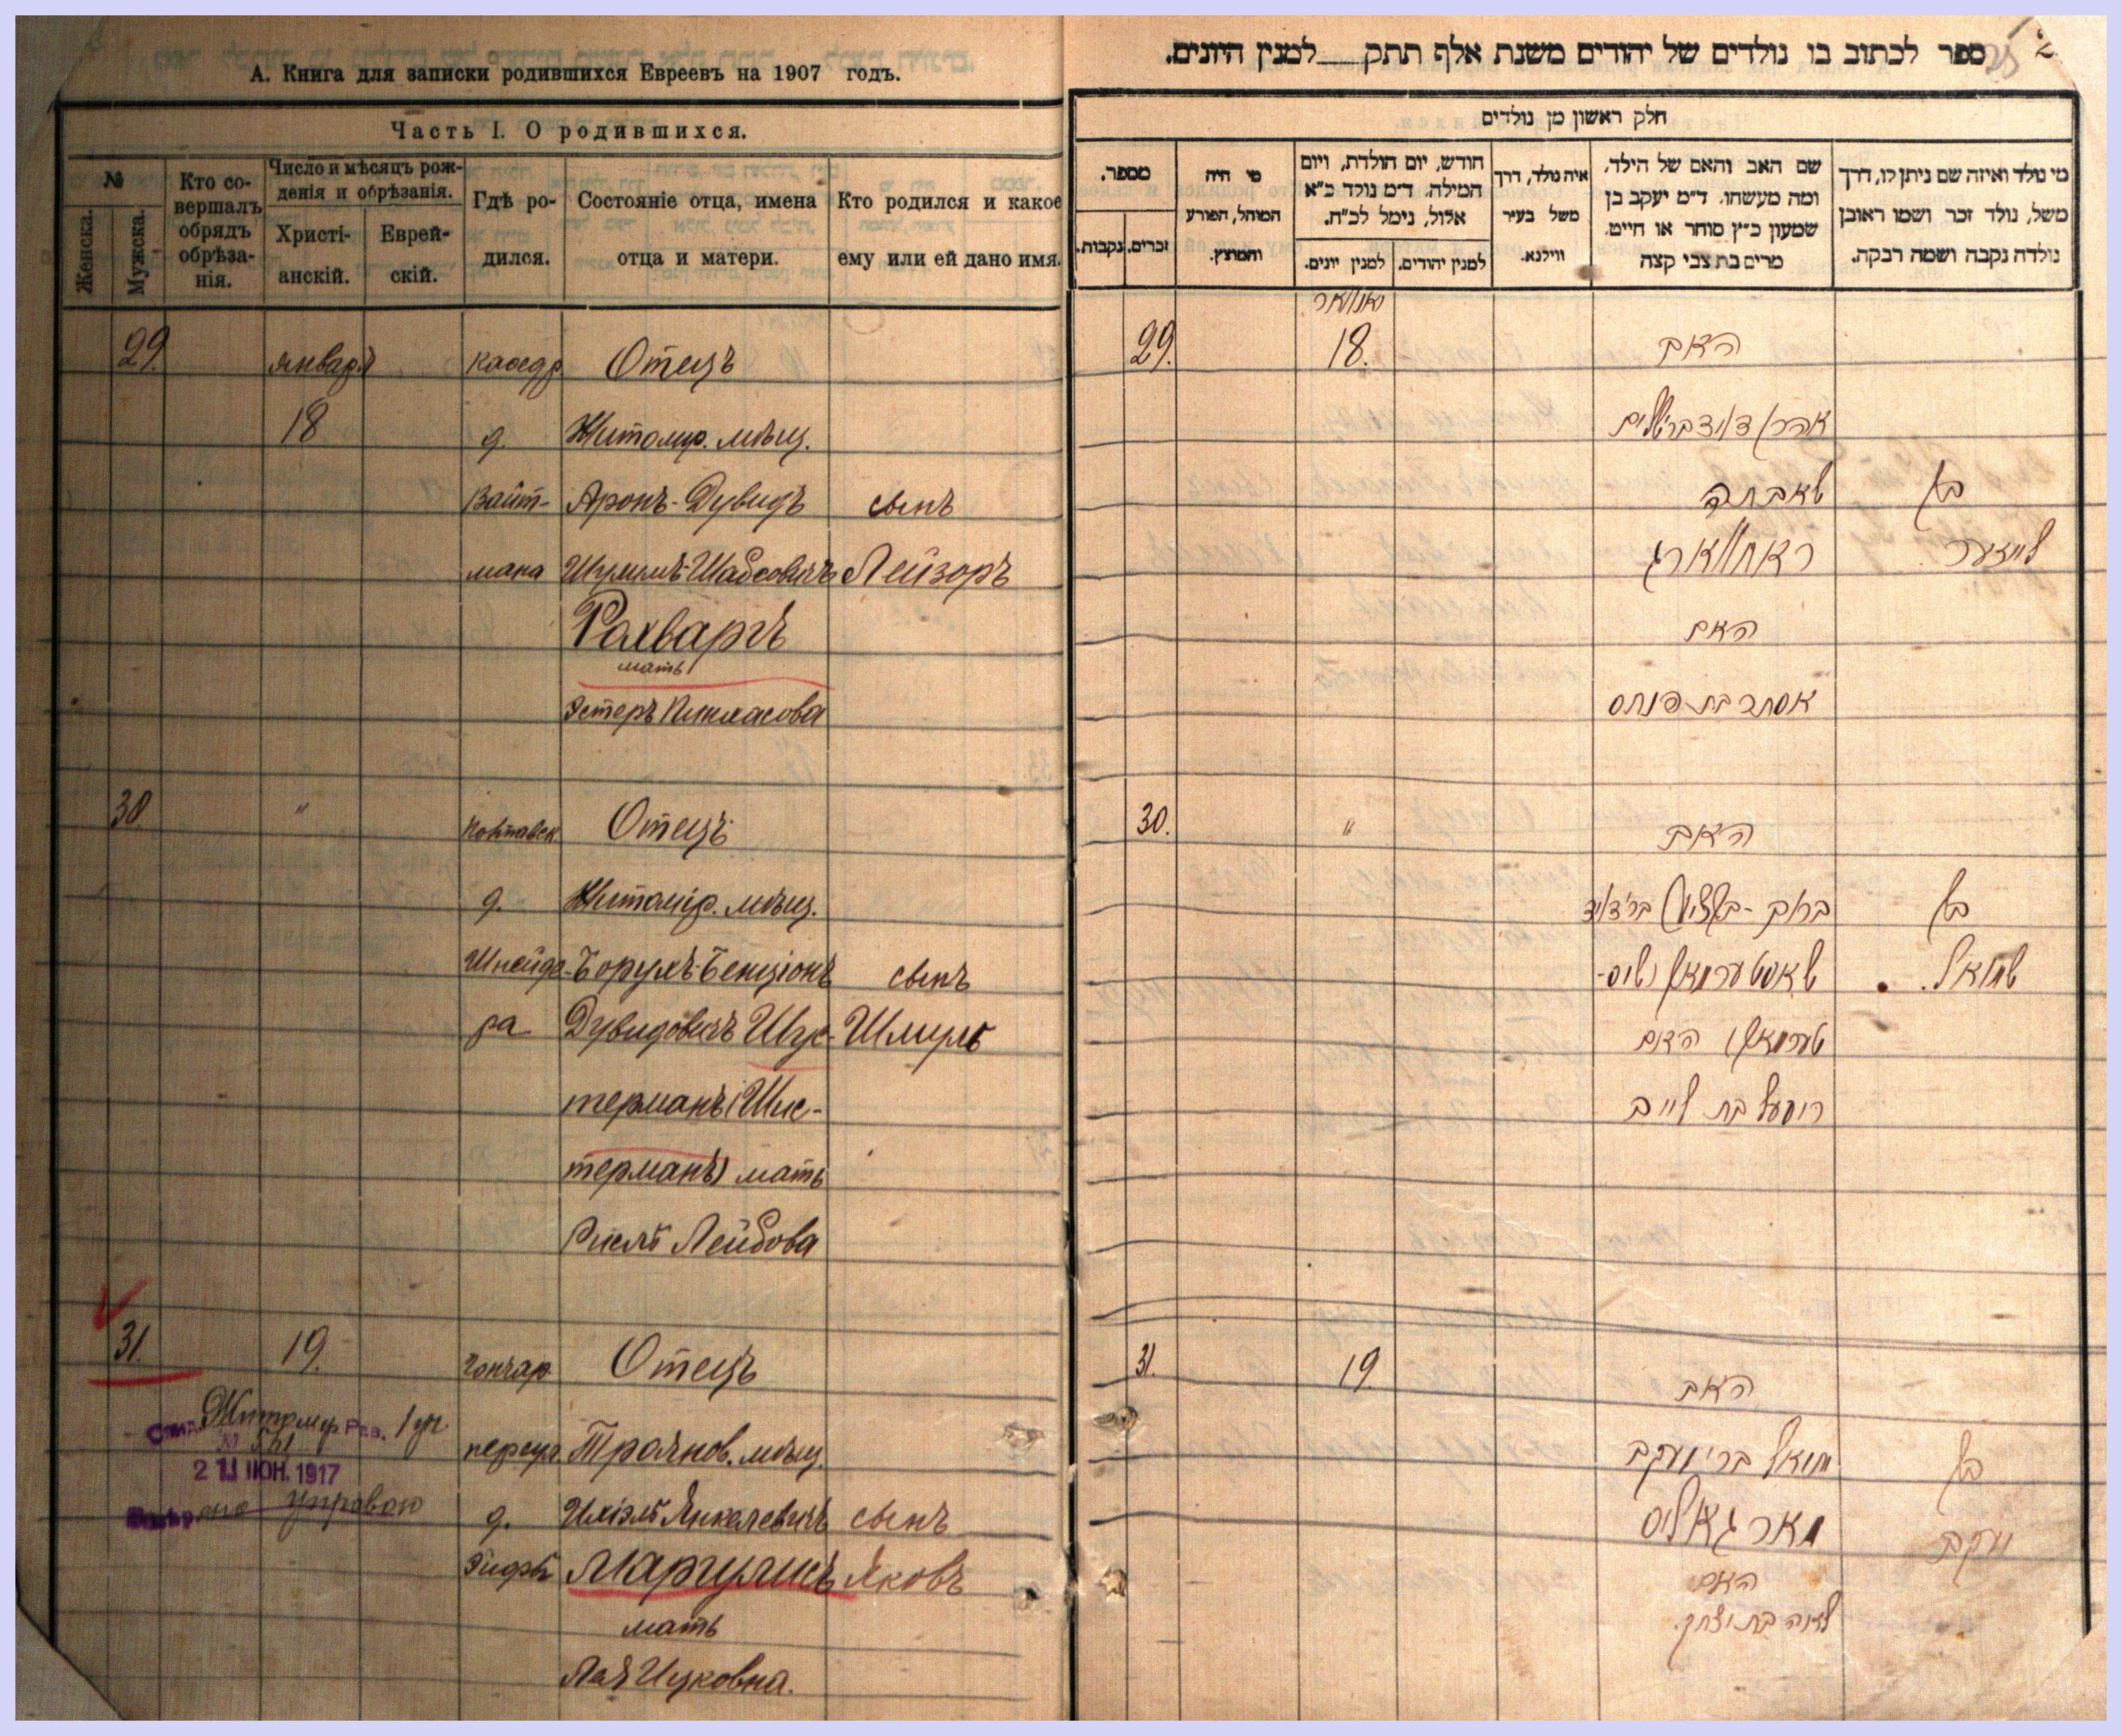 А. Книга для записки родившихся Евреевъ на 1907 годъ.
Часть I. О родившихся.
№
Женска.
Мужска.
Кто со-
вершалъ
обрядъ
обрѣза-
нія.
Число и мѣсяцъ рож-
денія и обрѣзанія.
Христі-
анскій.
Еврей-
скій.
Гдѣ ро-
дился.
Состояніе отца, имена
отца и матери.
Кто родился и какое
ему или ей дано имя.
29. января каѳедр Отецъ
18 д. Житомир. мѣщ.
Вайт- Аронъ-Дувидъ сынъ
мана Шмулъ-Шабсовичъ Лейзоръ
Рахваргъ
мать
Эстеръ Пинхасова
30 " Полтавск. Отецъ
д. Житомір. мѣщ.
Шнейде- Борухъ-Бенціонъ сынъ
ра Дувидовичъ Шус- Шмуль
терманъ (Шис-
терманъ) мать
Рисль Лейбова
31. 19. Гончар Отецъ
Житомир 1 уч.
№ 561
21 ІЮН. 1917
управою
переул Троянов. мѣщ.
д. Ихіэль Янкелевичъ сынъ
Маргулисъ Яковъ
мать
Лая Ицковна.
ספר לכתוב בו נולדים של יהודים משנת אלף תתק למנין היונים.
חלק ראשון מן נולדים
מספר.
נקבות.
זכרים.
מי היה
המוהל, הפורע
והמוצץ.
חודש, יום הולדת, ויום
המילה. ד״מ נולד כ״א
אלול, נימל לכ״ח.
למנין יונים.
למנין יהודים.
איה נולד, דרך
משל בעיר
ווילנא.
שם האב והאם של הילד,
ומה מעשהו. ד״מ יעקב בן
שמעון כ״ץ סוחר או חייט.
מרים בת צבי קצה
מי נולד ואיזה שם ניתן לו, דרך
משל, נולד זכר ושמו ראובן
נולדה נקבה ושמה רבקה.
יאנואר
29. 18. האב
שאבתי בן
ראחווארג לייזער
האם
אסתר בת פנחס
30. " האב
ברוך-בנציון בן
שוסטערמאן שיס- שמואל
טערמאן האם
ריסעל בת לייב
31. 19. האב
בן
מארגאליס יעקב
האם
לאה בת יצחק.